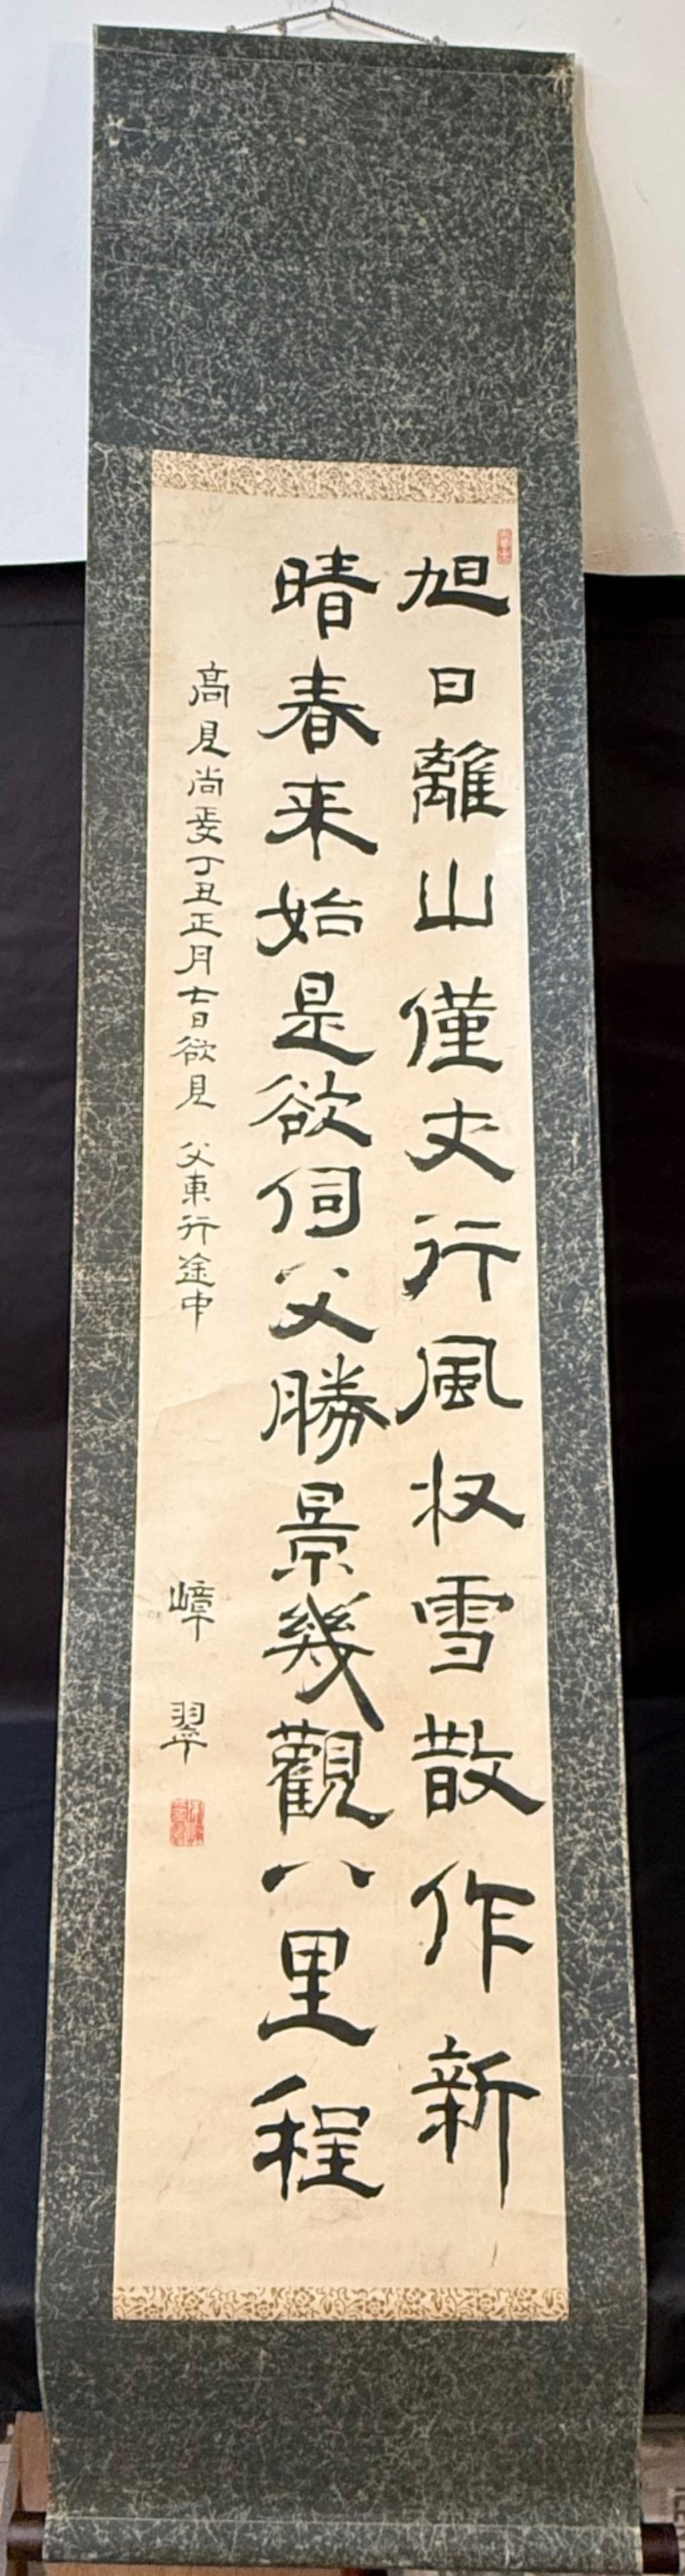 旭日離山僅丈行風収雪散作新
晴春来始是欲伺父勝景幾觀八里程
高見尚 丁丑正月七日欲見 父東行途中
嶂翠